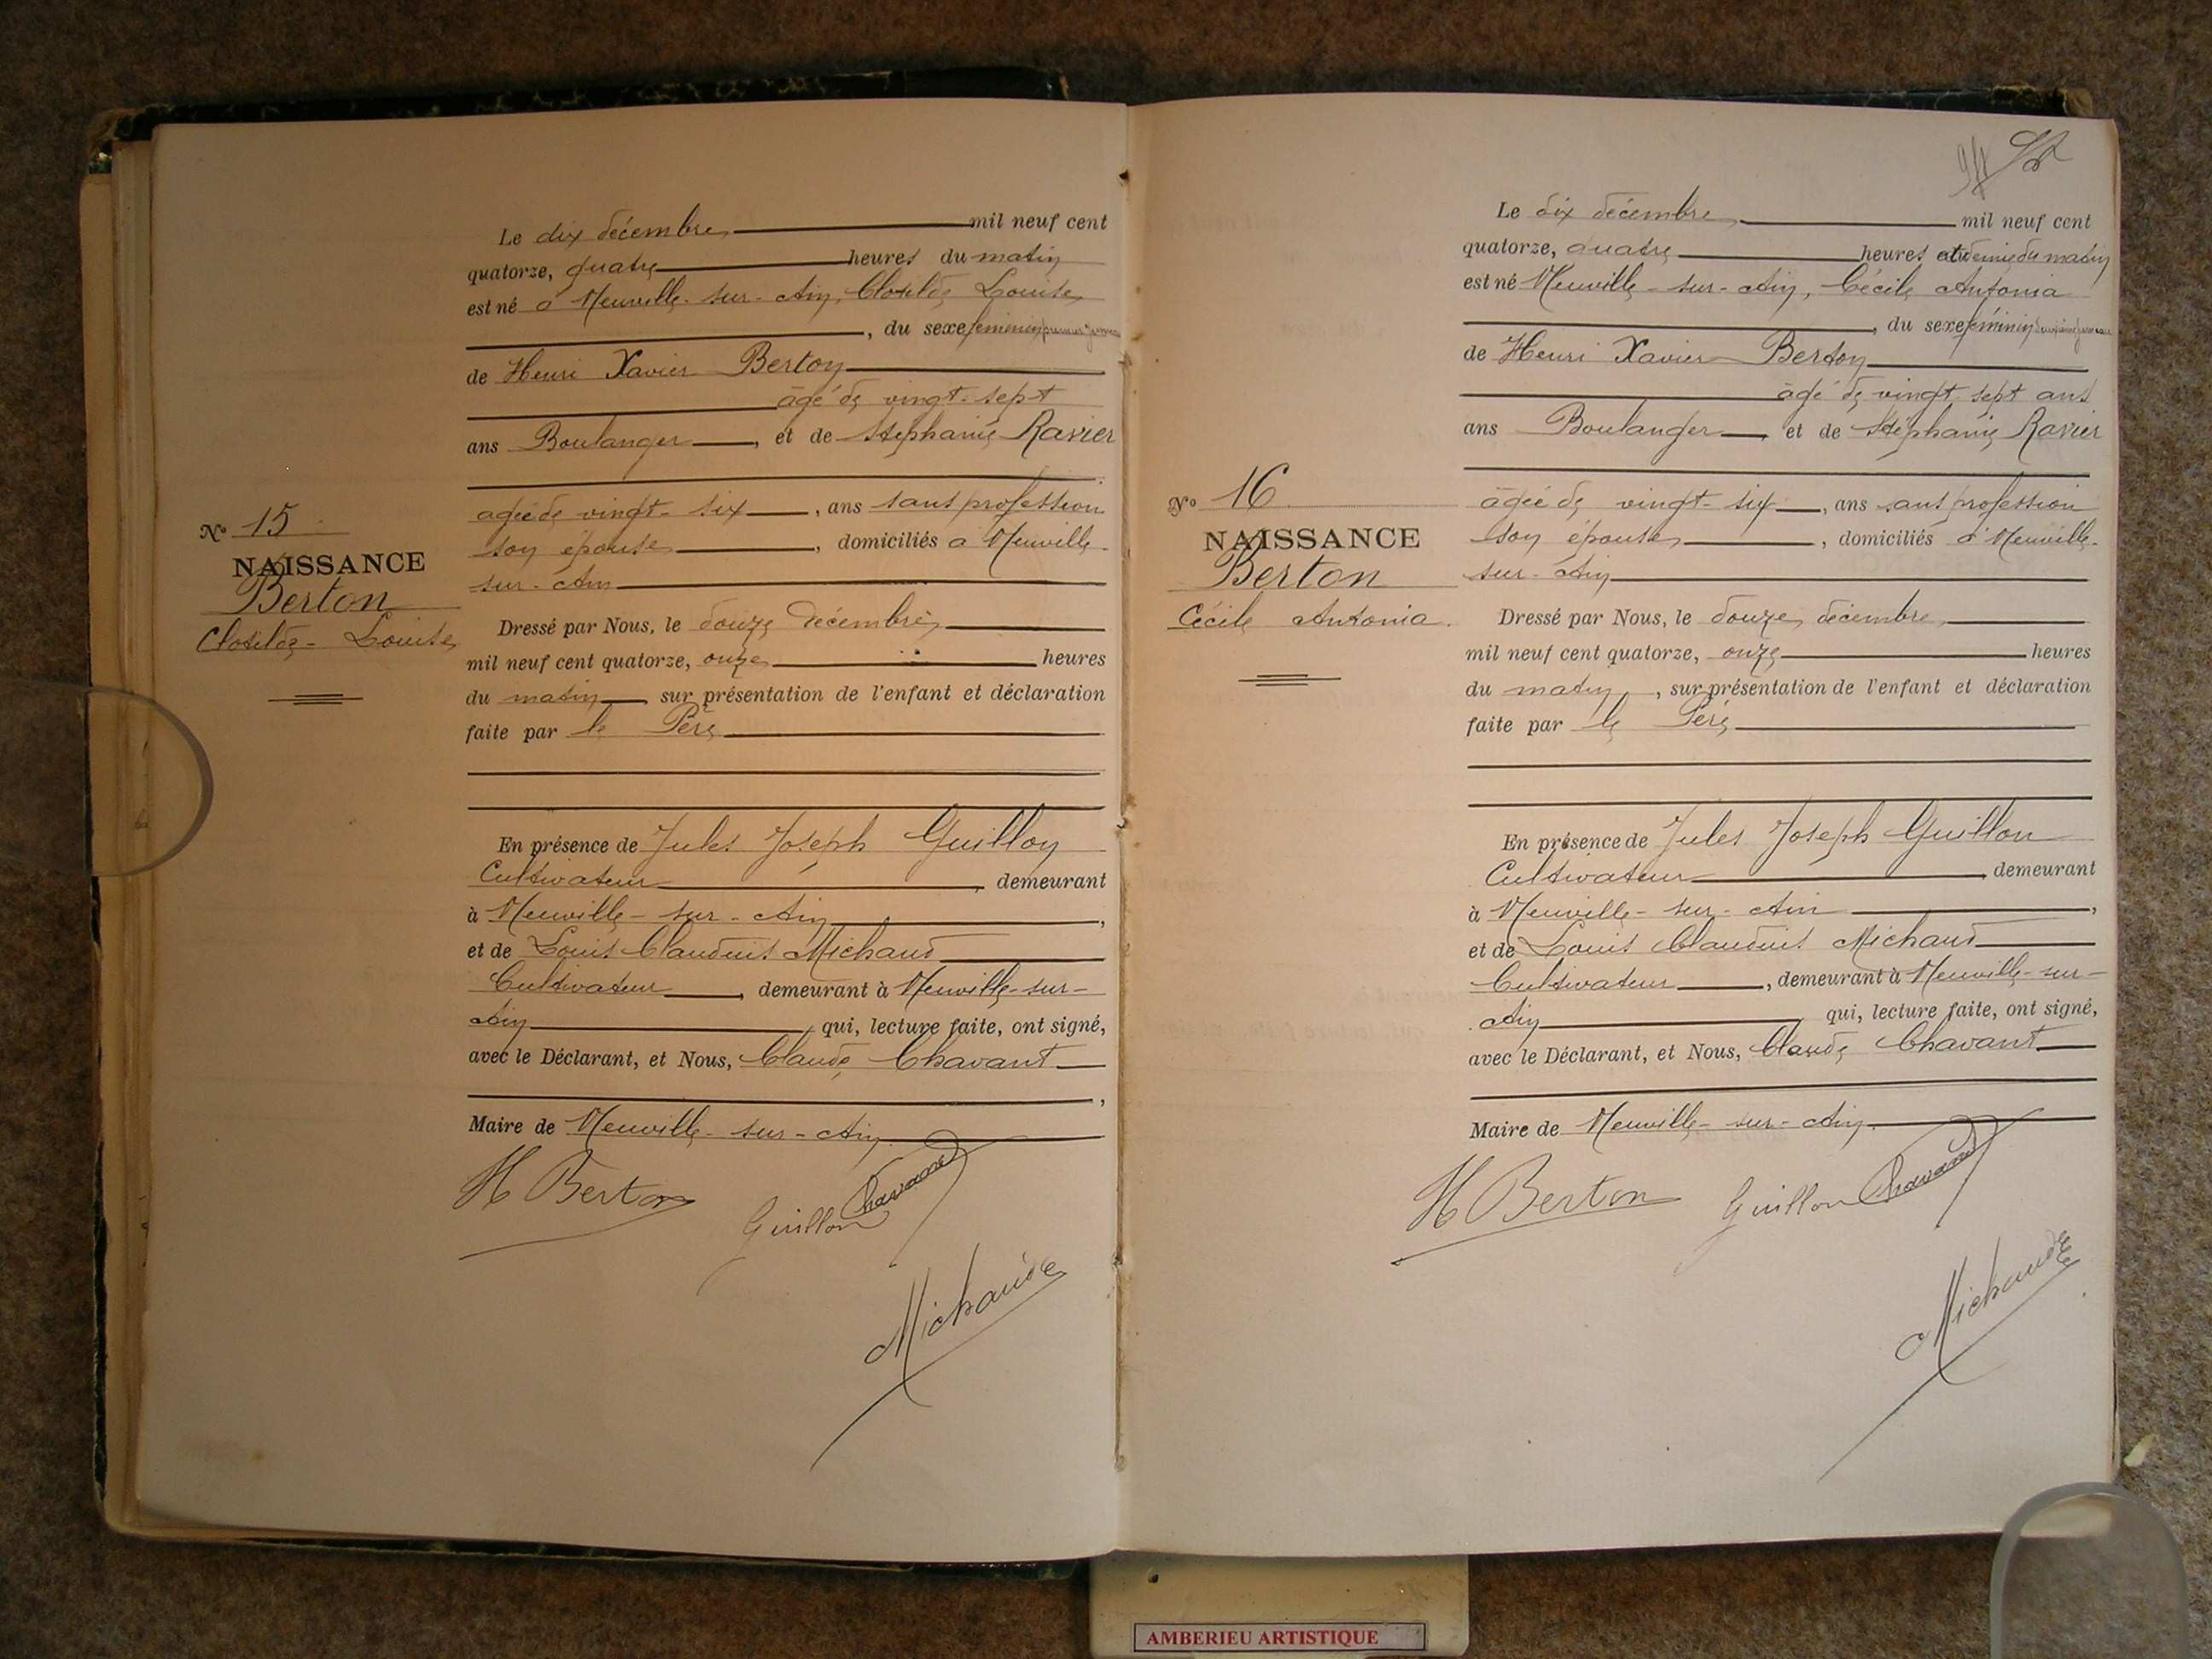 Le dix décembre mil neuf cent
quatorze, quatre heures du matin
est né à Neuville-sur-Ain, Clotilde Louise
, du sexe féminin, premier jumeau
de Henri Xavier Berton
âgé de vingt-sept
ans Boulanger, et de Stéphanie Ravier
agée de vingt-six, ans sans profession
son épouse, domiciliés à Neuville-
sur-Ain
Nº 15
NAISSANCE
Berton
Clotilde-Louise
Dressé par Nous, le douze décembre
mil neuf cent quatorze, onze heures
du matin, sur présentation de l'enfant et déclaration
faite par le Père
En présence de Jules Joseph Guillon
Cultivateur, demeurant
à Neuville-sur-Ain,
et de Louis Claudius Michaud
Cultivateur, demeurant à Neuville-sur-
Ain, qui, lecture faite, ont signé,
avec le Déclarant, et Nous, Claude Chavant
,
Maire de Neuville-sur-Ain.
H Berton
Guillon
Chavant
Michaud
Le dix décembre mil neuf cent
quatorze, quatre heures et demie du matin
est né Neuville-sur-Ain, Cécile Antonia
, du sexe féminin, deuxième jumeau
de Henri Xavier Berton
âgé de vingt-sept ans
ans Boulanger et de Stéphanie Ravier
âgée de vingt-six, ans sans profession
son épouse, domiciliés à Neuville-
sur-Ain
Nº 16
NAISSANCE
Berton
Cécile Antonia.
Dressé par Nous, le douze décembre
mil neuf cent quatorze, onze heures
du matin, sur présentation de l'enfant et déclaration
faite par le Père
En présence de Jules Joseph Guillon
Cultivateur, demeurant
à Neuville-sur-Ain,
et de Louis Claudius Michaud
Cultivateur, demeurant à Neuville-sur-
Ain qui, lecture faite, ont signé,
avec le Déclarant, et Nous, Claude Chavant
Maire de Neuville-sur-Ain.
H Berton
Guillon
Chavant
Michaud
AMBERIEU ARTISTIQUE